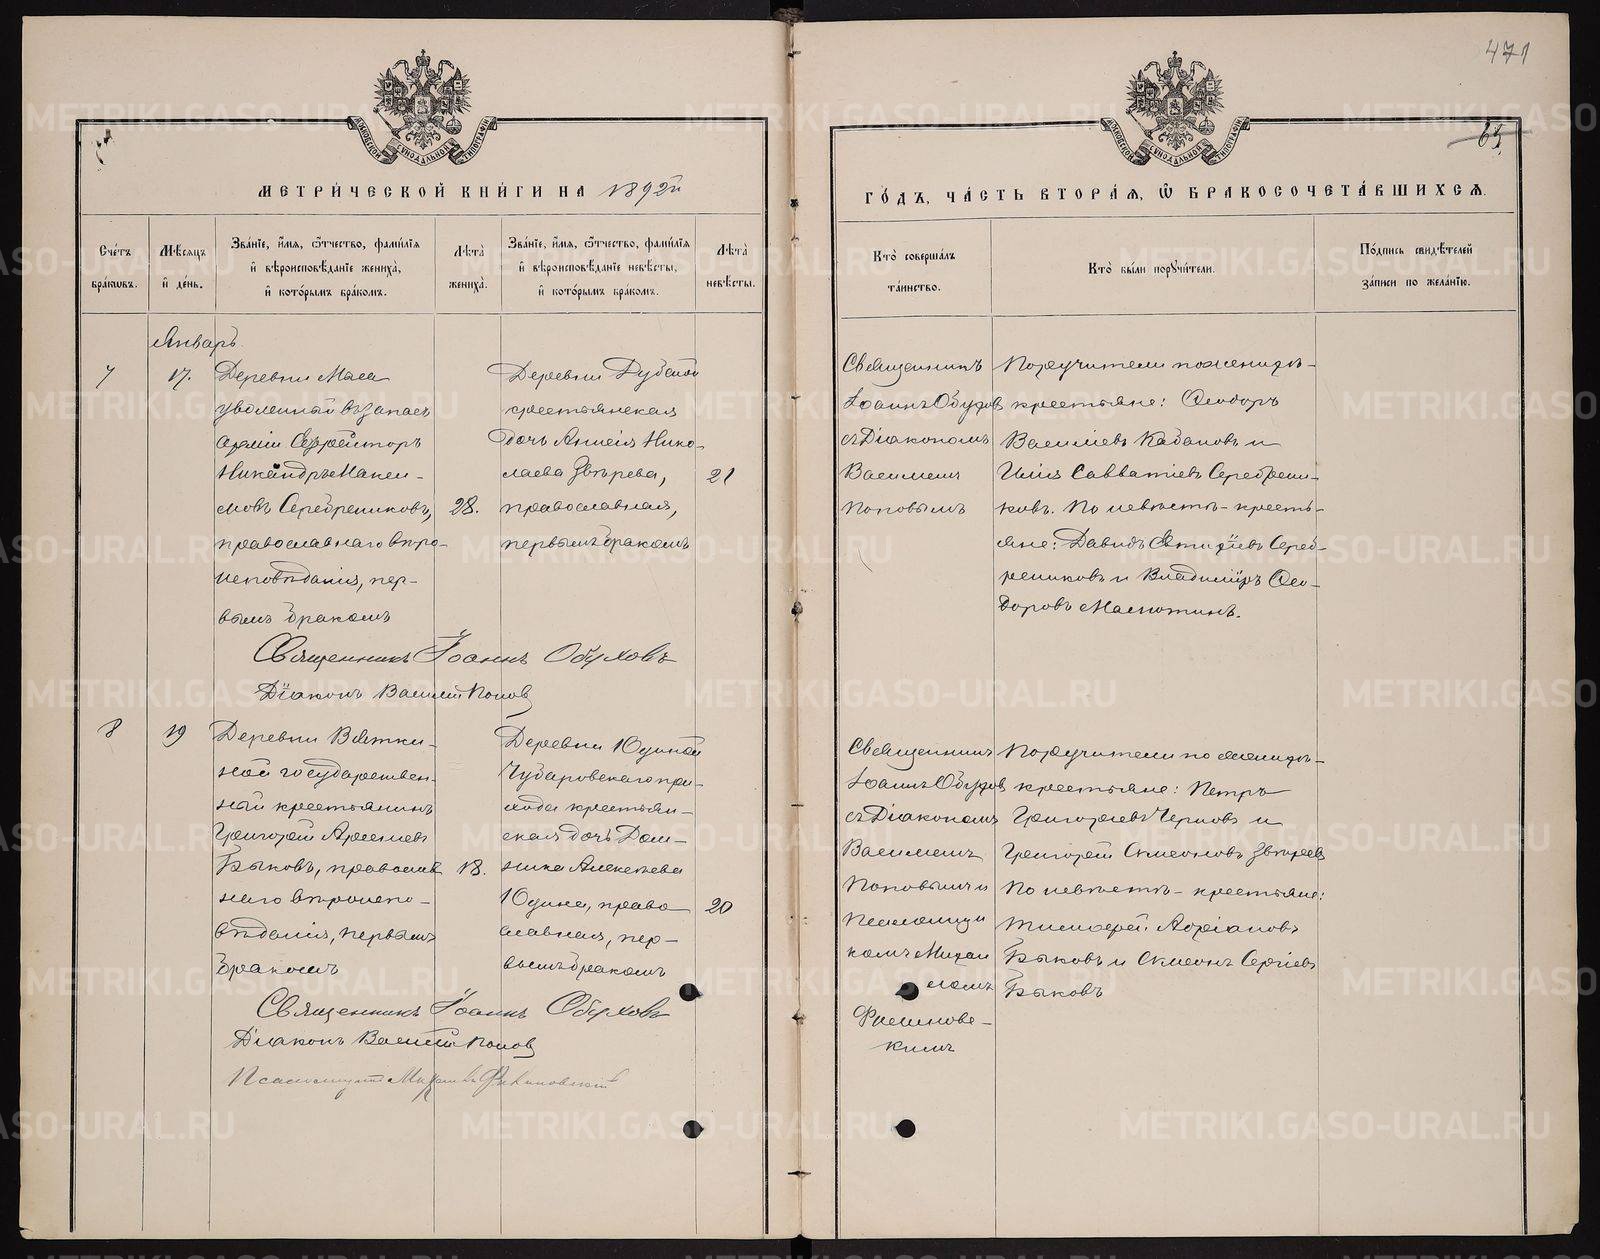 471
65
МЕТРИ́ЧЕСКОЙ КНИ́ГИ НА 1892й
ГО́ДЪ, ЧА́СТЬ ВТОРА́Я, Ѿ БРАКОСОЧЕТА́ВШИХСЯ.
МОСКОВСКОЙ СѴНОДАЛЬНОЙ ТИПОГРАФІИ
МОСКОВСКОЙ СѴНОДАЛЬНОЙ ТИПОГРАФІИ
Сче́тъ
бра́ковъ.
Мѣ́сяцъ
и҆ де́нь.
Зва́нїе, и҆́мя, ѻ҆́тчество, фами́лїя
и҆ вѣроисповѣ́данїе жениха̀,
и҆ кото́рымъ бра́комъ.
Лѣта̀
жениха̀.
Зва́нїе, и҆́мя, ѻ҆́тчество, фами́лїя
и҆ вѣроисповѣ́данїе невѣ́сты,
и҆ кото́рымъ бра́комъ.
Лѣта̀
невѣ́сты.
Кто̀ соверша́лъ
та́инство.
Кто̀ бы́ли порꙋчи́тели.
По́дпись свидѣ́телей
за́писи по жела́нїю.
Январь
7
17.
Деревни
уволенный въ запасъ
арміи Ефрейторъ
Никандръ Макси-
мовъ Серебрениковъ,
православнаго вѣро-
исповѣданія, пер-
вымъ бракомъ
28.
Деревни
крестьянская
дочь Анисія Нико-
лаева Звѣрева,
православная,
первымъ бракомъ
21
Священникъ
Іоаннъ Обуховъ
съ Діакономъ
Василіемъ
Поповымъ
Поручители по женихѣ-
крестьяне: Ѳеодоръ
Васильевъ Кабановъ и
Илія Савватіевъ Серебрени-
ковъ. По невѣстѣ - кресть-
яне: Давидъ Сереб-
рениковъ и Владиміръ Ѳео-
доровъ Масютинъ.
Священникъ Іоаннъ Обуховъ
Діаконъ Василій Попов
8
19
Деревни Вяткин-
ной государствен-
ный крестьянинъ
Григорій Арсеніевъ
Быковъ, православ
наго вѣроиспо-
вѣданія, первымъ
бракомъ
18.
Деревни Юдиной
Чубаровскаго при-
хода крестьян-
ская дочь Дом-
ника Алексѣева
Юдина, право
славная, пер-
вымъ бракомъ
20
Священникъ
Іоаннъ Обухов
съ Діакономъ
Василіемъ
Поповымъ и
Псаломщи
комъ Михаи
ломъ
Фисинов-
кимъ
Поручители по женихѣ-
крестьяне: Петръ
Григорьевъ Черновъ и
Григорій Симеоновъ Звѣревъ
По невѣстѣ - крестьяне:
Тимофей Адріановъ
Быковъ и Симеонъ Сергіевъ
Быковъ
Священникъ Іоаннъ Обуховъ
Діаконъ Василій Попов
Псаломщикъ Михаилъ
METRIKI.GASO-URAL.RU